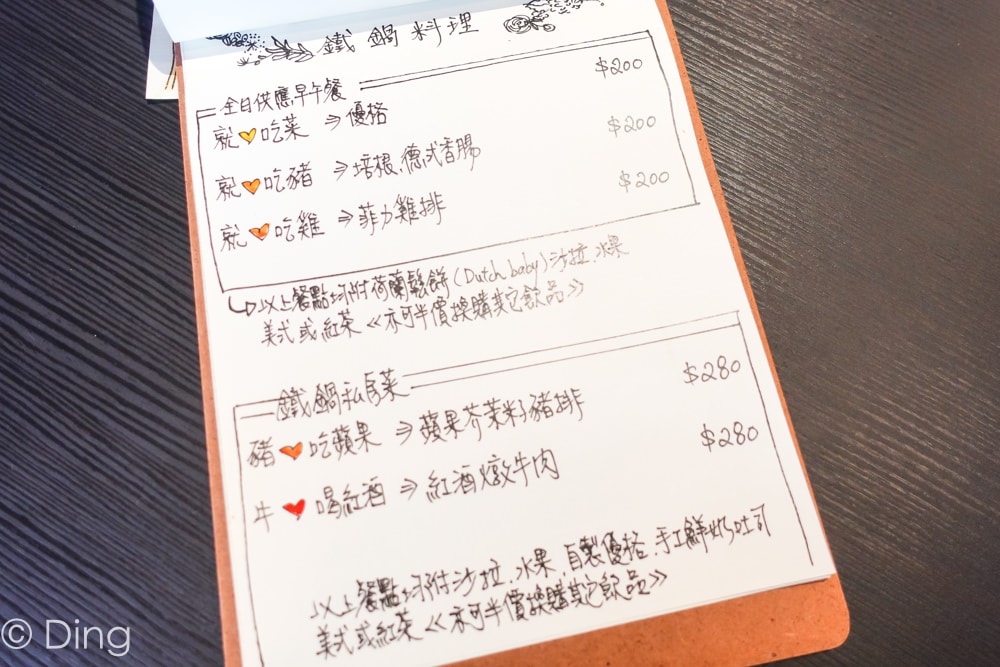 鐵鍋料理
全日供應早午餐
就吃菜 ⇒ 優格 $200
就吃豬 ⇒ 培根、德式香腸 $200
就吃雞 ⇒ 菲力雞排 $200
以上餐點均附荷蘭鬆餅(Dutch baby)沙拉.水果
美式或紅茶《亦可半價換購其它飲品》
鐵鍋私房菜
豬吃蘋果 ⇒ 蘋果芥茉籽豬排 $280
牛喝紅酒 ⇒ 紅酒燉牛肉 $280
以上餐點均附沙拉.水果,自製優格.手工鮮奶吐司
美式或紅茶《亦可半價換購其它飲品》
© Ding